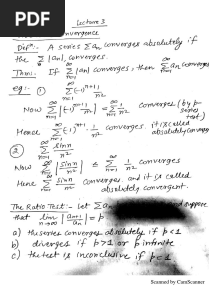 PDF
Lecture 3
Convergence
Defⁿ:- A series Σaₙ converges absolutely if
the Σ|aₙ| converges.
Thm:- If Σ|aₙ| converges, then Σaₙ converges
eg:- ① Σ(-1)ⁿ⁺¹ 1/n²
Now Σ|(-1)ⁿ⁺¹ 1/n²| = Σ 1/n² converges (by p series test)
Hence Σ(-1)ⁿ⁺¹ 1/n² converges it is called absolutely
② Σ sinn/n²
Now Σ|sinn/n²| ≤ Σ 1/n² converges
Hence Σ sinn/n² converges and it is called
absolutely convergent.
The Ratio Test:- let Σaₙ and suppose
that lim n→∞ |aₙ₊₁/aₙ| = p
a) the series converges absolutely if p<1
b) diverges if p>1 or p infinite
c) the test is inconclusive if p
Scanned by CamScanner